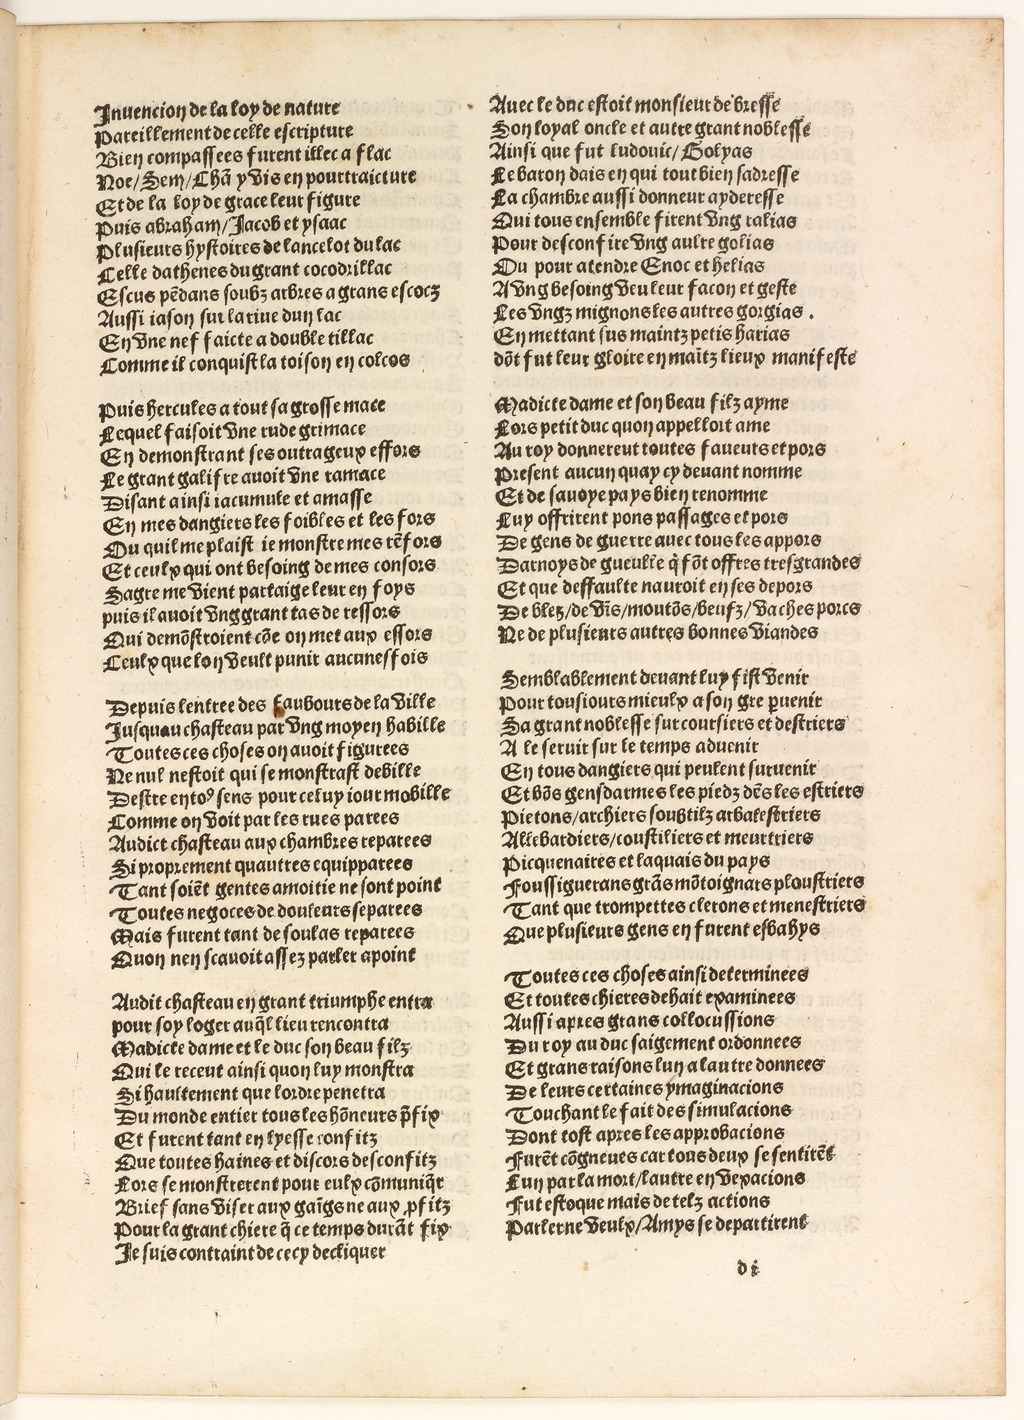 Invencion de la loy de nature
Pareillement de celle escripture
Bien compassees furent illec a flac
Noe/Sem/Chã y vis en pourtraicture
Et de la loy de grace leur figure
Puis abraham/Jacob et ysaac
Plusieurs hystoires de lancelot du lac
Celle dathenes du grant cocodrillac
Escus pẽdans soubz arbres a grans escocz
Aussi iason sur la riue dun lac
En vne nef faicte a double tillac
Comme il conquist la toison en colcos

Puis hercules a tout sa grosse mace
Lequel faisoit vne rude grimace
En demonstrant ses outrageux effors
Le grant galifre auoit vne ramace
Disant ainsi iacumule et amasse
En mes dangiers les foibles et les fors
Ou quil me plaist ie monstre mes rẽfors
Et ceulx qui ont besoing de mes consors
Sagre me vient partaige leur en foys
puis il auoit vng grant tas de ressors
Qui demõstroient cõe on met aux essors
Ceulx que lon veult punir aucunesfois

Depuis lentree des faubours de la ville
Jusquau chasteau par vng moyen habille
Toutes ces choses on auoit figurees
Ne nul nestoit qui se monstrast debille
Destre en toꝰ sens pour celuy iour mobille
Comme on voit par les rues parees
Audict chasteau aux chambres reparees
Si proprement quautres equipparees
Tant soiẽt gentes amoitie ne sont point
Toutes negoces de douleurs separees
Mais furent tant de soulas reparees
Quon nen scauoit assez parler apoint

Audit chasteau en grant triumphe entra
pour soy loger auq̃l lieu rencontra
Madicte dame et le duc son beau filz
Qui le receut ainsi quon luy monstra
Si haultement que lordre penetra
Du monde entier tous les hõneurs p̃fix
Et furent tant en lyesse confitz
Que toutes haines et discors desconfitz
Lors se monstrerent pour eulx cõmuniq̃r
Brief sans viser aux gaĩgs ne aux ꝓfitz
Pour la grant chiere q̃ ce temps durãt fix
Je suis contraint de cecy decliquer

Auec le duc estoit monsieur de bresse
Son loyal oncle et autre grant noblesse
Ainsi que fut ludouic/Golyas
Le baron dais en qui tout bien sadresse
La chambre aussi donneur ayderesse
Qui tous ensemble firent vng talias
Pour desconfire vng aultre golias
Ou pour atendre Enoc et helias
A vng besoing veu leur facon et geste
Les vngz mignons les autres gorgias .
En mettant sus maintz petis harias
dõt fut leur gloire en maĩtz lieux manifeste

Madicte dame et son beau filz ayme
Lors petit duc quon appellort ame
Au roy donnereut toutes faueurs et pors
Present aucun quay cy deuant nomme
Et de sauoye pays bien renomme
Luy offrirent pons passages et pors
De gens de guerre auec tous les appors
Darnoys de gueulle q̃ fõt offres tresgrandes
Et que deffaulte nauroit en ses depors
De blez/de vĩs/moutõs/beufz/vaches porcs
Ne de plusieurs autres bonnes viandes

Semblablement deuant luy fist venir
Pour tousiours mieulx a son gre p̱uenir
Sa grant noblesse sur coursiers et destriers
A le seruir sur le temps aduenir
En tous dangiers qui peulent suruenir
Et bõs gensdarmes les piedz dẽs les estriers
Pietons/archiers soubtilz arbalestriers
Allebardiers/coustiliers et meurtriers
Picquenaires et laquais du pays
Foussiguerans grãs mõtoignars ploustriers
Tant que trompettes clerons et menestriers
Que plusieurs gens en furent esbahys

Toutes ces choses ainsi determinees
Et toutes chieres dehait examinees
Aussi apres grans collocussions
Du roy au duc saigement ordonnees
Et grans raisons lun a lautre donnees
De leurs certaines ymaginacions
Touchant le fait des simulacions
Dont tost apres les approbacions
Furẽt cõgneues car tous deux se sentirẽt
Lun par la mort/lautre en vexacions
Fut estoque mais de telz actions
Parler ne veulx/Amys se departirent
di